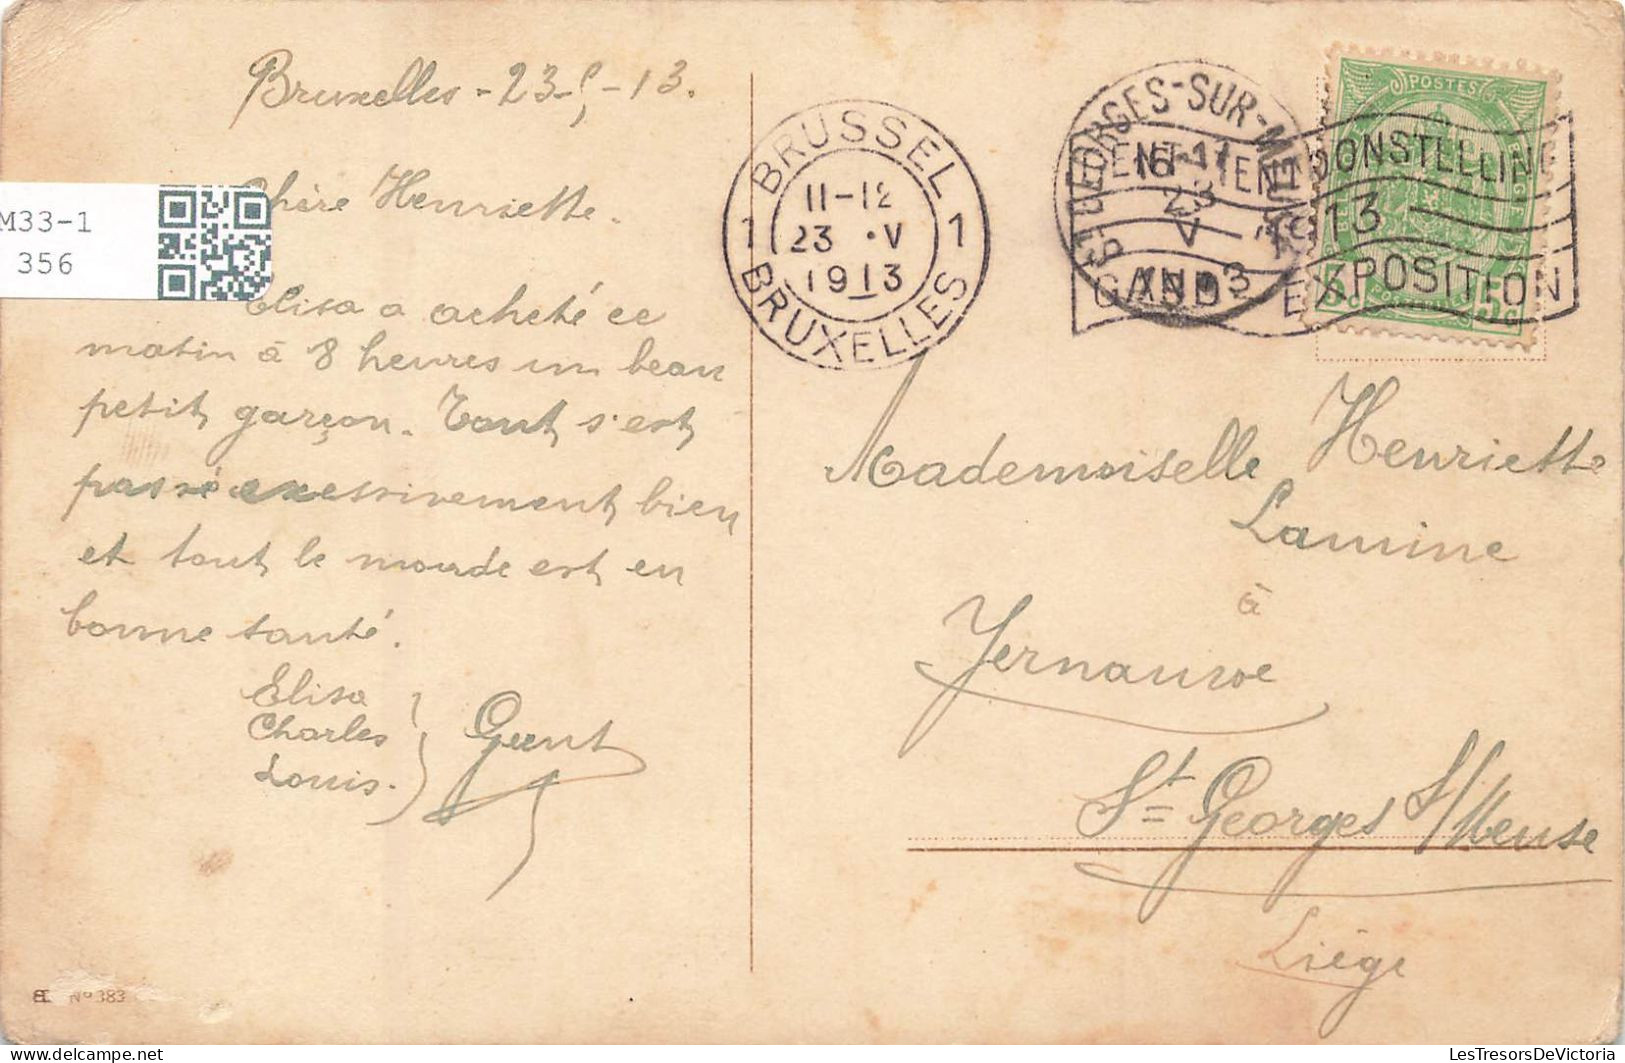 Bruxelles - 23-5-13.
Chère Henriette.
Elisa a acheté ce
matin à 8 heures un beau
petit garçon. Tout s'est
passé excessivement bien
et tout le monde est en
bonne santé.
Elisa
Charles
Louis.
M33-1
356
BRUSSEL
1 1
11-12
23 · V
1913
BRUXELLES
ST GEORGES-SUR-MEUSE
16-17
23
V
GENT-GENT TOONSTELLING
1913
GAND EXPOSITION
POSTES
5c 5c
Mademoiselle Henriette
Lamine
à
St Georges s/Meuse
Liège
No 383
delcampe.net
LesTresorsDeVictoria